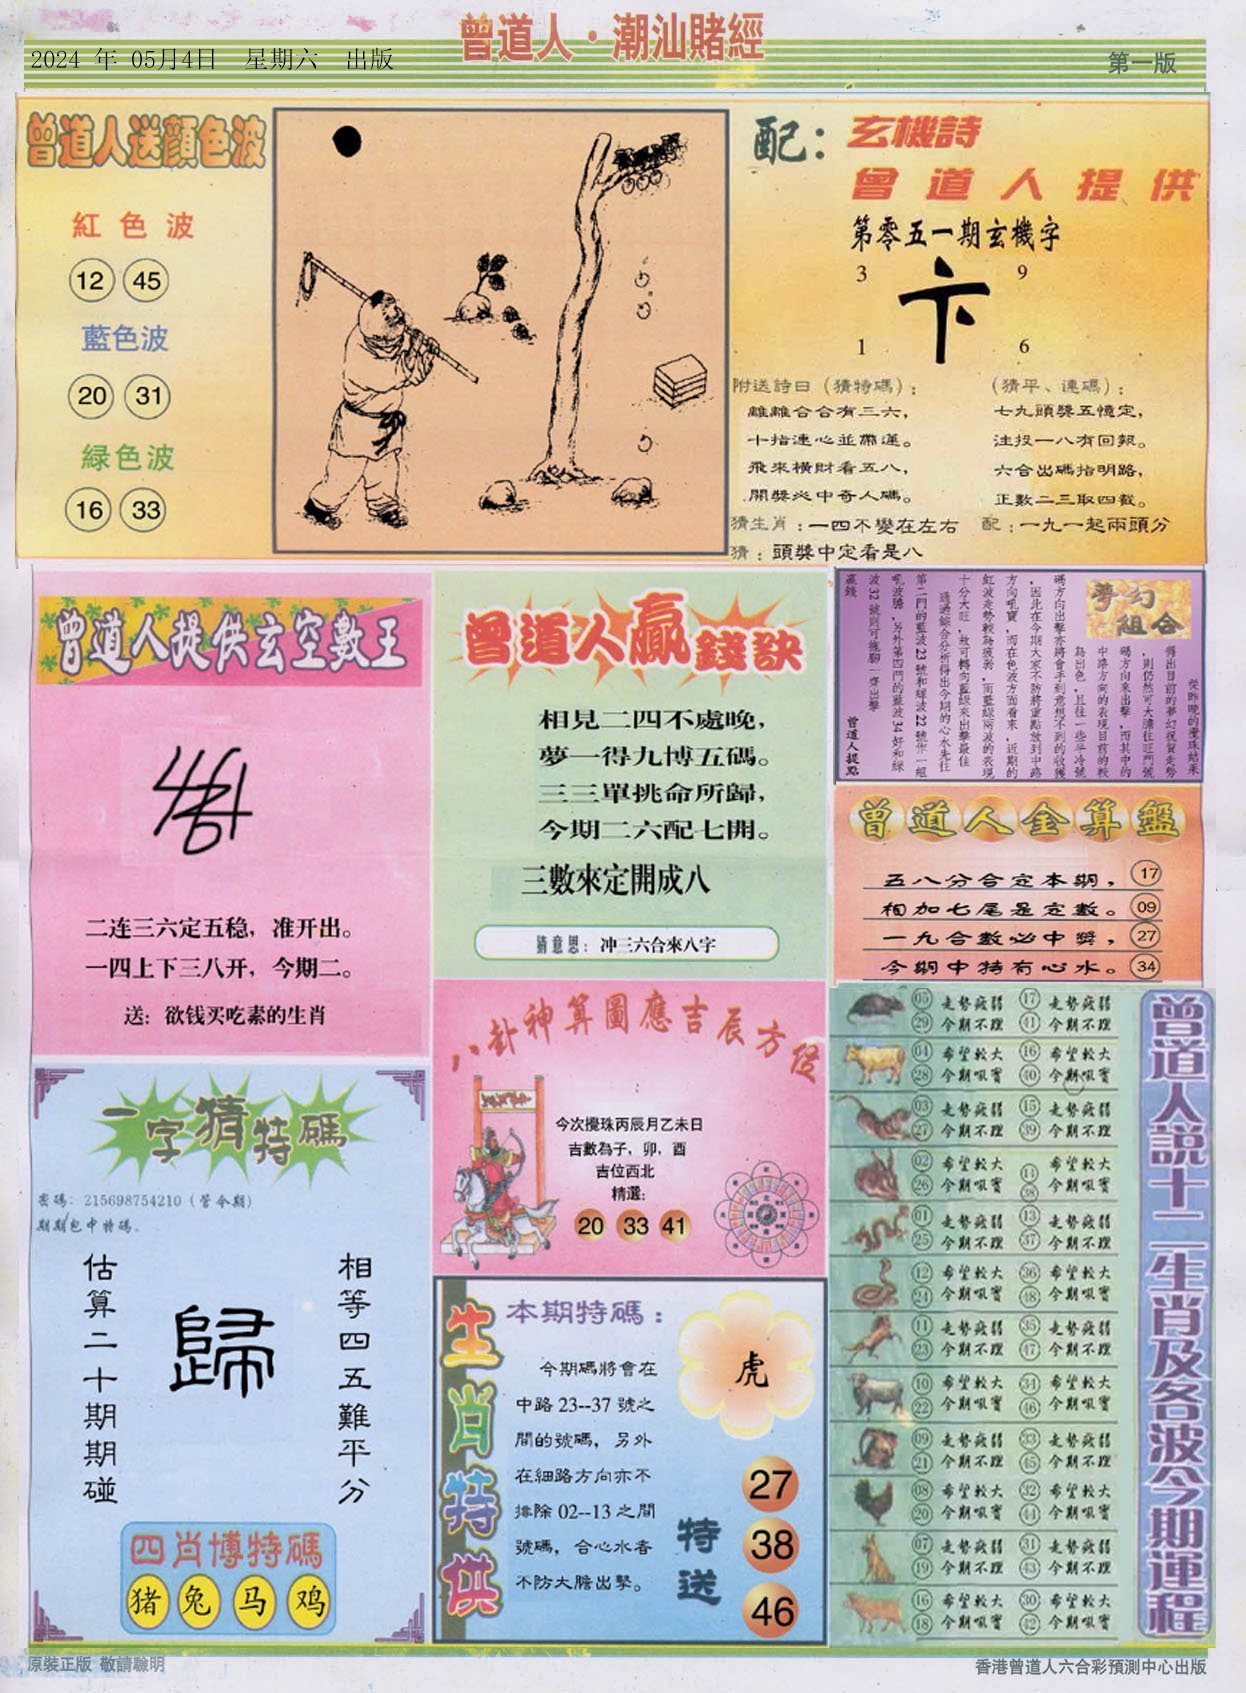 曾道人·潮汕賭經
2024 年 05月4日 星期六 出版
第一版
曾道人送顏色波
紅色波
12 45
藍色波
20 31
緑色波
16 33
配：玄機詩
曾道人提供
第零五一期玄機字
3 9
卞
1 6
附送詩曰（猜特碼）：
離離合合有三六，
十指連心並帶運。
飛來橫財看五八，
開獎必中奇人碼。
（猜平、連碼）：
七九頭獎五憶定，
注投一八有回報。
六合出碼指明路，
正數二三取四截。
猜生肖：一四不變在左右 配：一九一起兩頭分
猜：頭獎中定看是八
曾道人提供玄空數王
二连三六定五稳，准开出。
一四上下三八开，今期二。
送：欲钱买吃素的生肖
曾道人贏錢訣
相見二四不處晚，
夢一得九博五碼。
三三單挑命所歸，
今期二六配七開。
三數來定開成八
猜意思：冲三六合來八字
夢幻組合
從昨晚的攪珠結果
得出目前的夢幻祝賀走勢
，則仍然可大膽往旺門號
碼方向來出擊，而其中的
中路方向的表現目前的較
為出色，且往一些半冷號
碼方向出擊亦將會手到意想不到的收獲
，因此在今期大家不防將重點放到中路
方向吼寶，而在色波方面看來，近期的
紅波走勢較為疲弱，而藍緑兩波的表現
十分大旺，故可轉向藍緑來出擊最佳
通過綜合分析得出今期的心水先往
第二門的藍波23號和緑波22號作一組
吼波膽，另外第四門的藍波34好和緑
波32號則可拖脚一齊出擊
贏錢
曾道人提點
曾道人金算盤
五八分合定本期， 17
相加七尾是定數。 09
一九合數必中獎， 27
今期中特有心水。 34
八卦神算圖應吉辰方位
今次攪珠丙辰月乙未日
吉數為子，卯，酉
吉位西北
精選：
20 33 41
一字猜特碼
密碼：215698754210（管今期）
期期包中特碼。
估算二十期期碰
歸
相等四五難平分
四肖博特碼
猪 兔 马 鸡
生肖特供
本期特碼：
今期碼將會在
中路 23--37 號之
間的號碼，另外
在細路方向亦不
排除 02--13 之間
號碼，合心水者
不防大膽出擊。
虎
特送
27
38
46
05 走勢疲弱 17 走勢疲弱
29 今期不理 41 今期不理
04 希望較大 16 希望較大
28 今期吼寶 40 今期吼寶
03 走勢疲弱 15 走勢疲弱
27 今期不理 39 今期不理
02 希望較大 14 希望較大
26 今期吼寶 38 今期吼寶
01 走勢疲弱 13 走勢疲弱
25 今期不理 37 今期不理
12 希望較大 36 希望較大
24 今期吼寶 48 今期吼寶
11 走勢疲弱 35 走勢疲弱
23 今期不理 47 今期不理
10 希望較大 34 希望較大
22 今期吼寶 46 今期吼寶
09 走勢疲弱 33 走勢疲弱
21 今期不理 45 今期不理
08 希望較大 32 希望較大
20 今期吼寶 44 今期吼寶
07 走勢疲弱 31 走勢疲弱
19 今期不理 43 今期不理
16 希望較大 30 希望較大
18 今期吼寶 42 今期吼寶
曾道人説十二生肖及各波今期運程
原裝正版 敬請聰明
香港曾道人六合彩預測中心出版